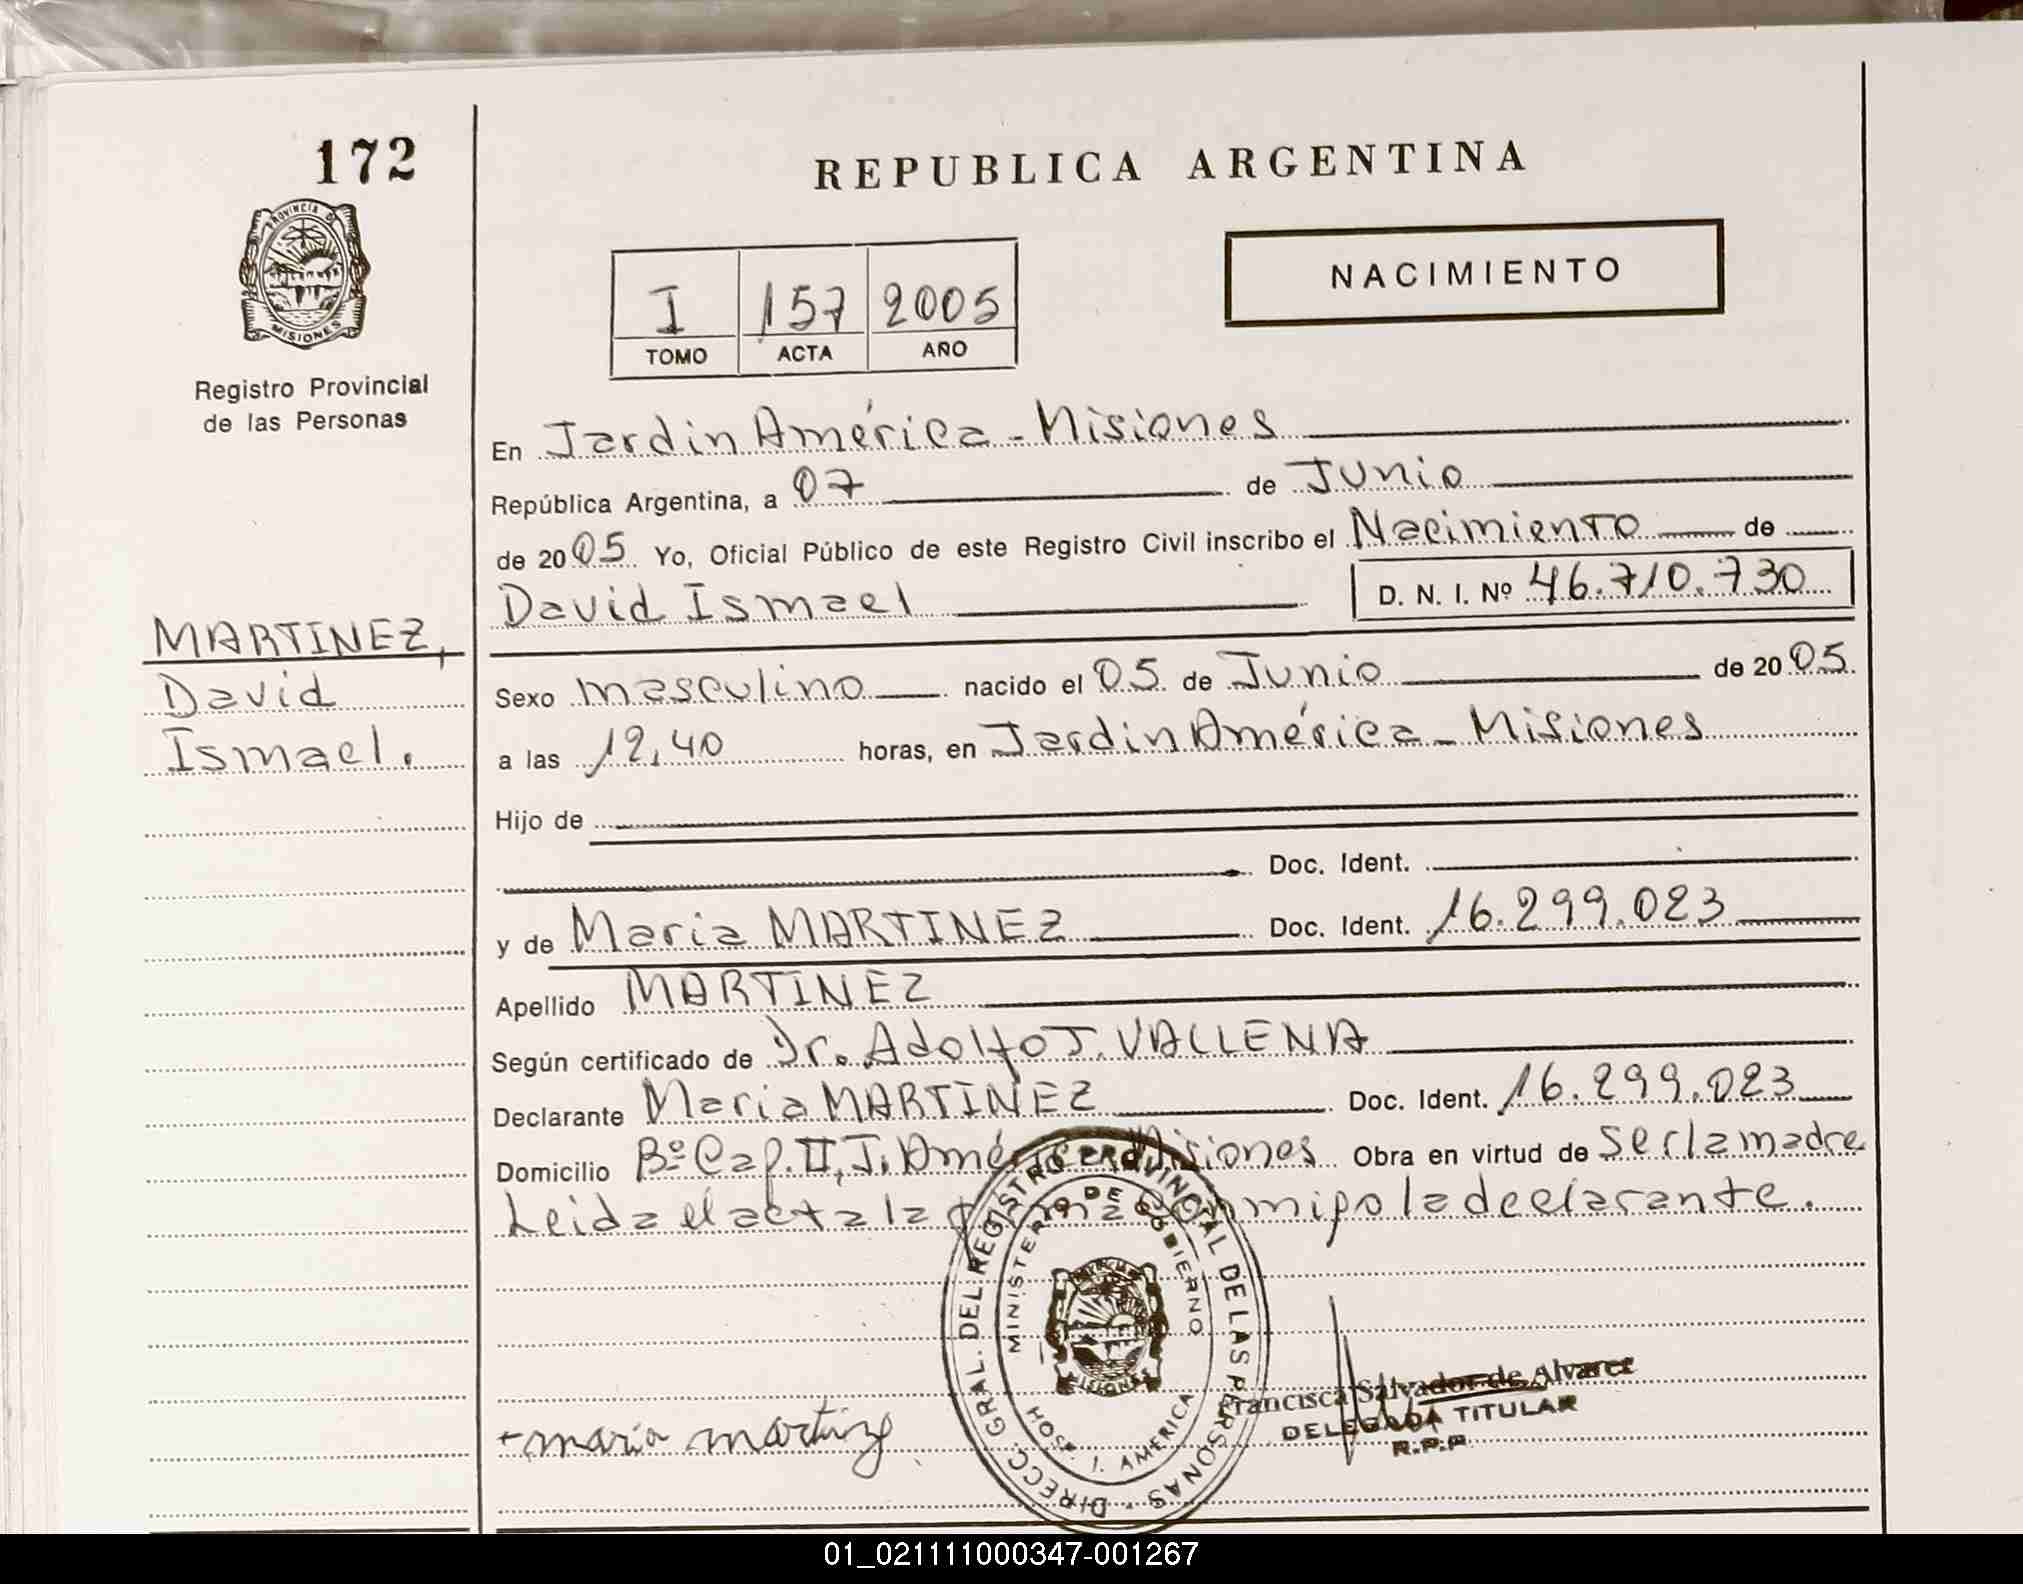 172
REPUBLICA ARGENTINA
PROVINCIA DE
MISIONES
Registro Provincial
de las Personas
I 157 2005
TOMO ACTA AÑO
NACIMIENTO
En Jardin América - Misiones
República Argentina, a 07 de Junio
de 2005 Yo, Oficial Público de este Registro Civil inscribo el Nacimiento de
David Ismael D. N. I. Nº 46.710.730
MARTINEZ,
David
Ismael.
Sexo masculino nacido el 05 de Junio de 2005.
a las 12,40 horas, en Jardin América - Misiones
Hijo de
Doc. Ident.
y de Maria MARTINEZ Doc. Ident. 16.299.023
Apellido MARTINEZ
Según certificado de Dr. Adolfo J. VALLENA
Declarante Maria MARTINEZ Doc. Ident. 16.299.023
Domicilio Bº Cap. II, J. América Misiones Obra en virtud de ser la madre
Leida el acta la firma conmigo la declarante.
DIRECC. GRAL. DEL REGISTRO PROVINCIAL DE LAS PERSONAS
MINISTERIO DE GOBIERNO
MISIONES
HOSP. J. AMERICA
+ maria martinez
Francisca Salvador de Alvarez
DELEGADA TITULAR
R.P.P.
01_021111000347-001267